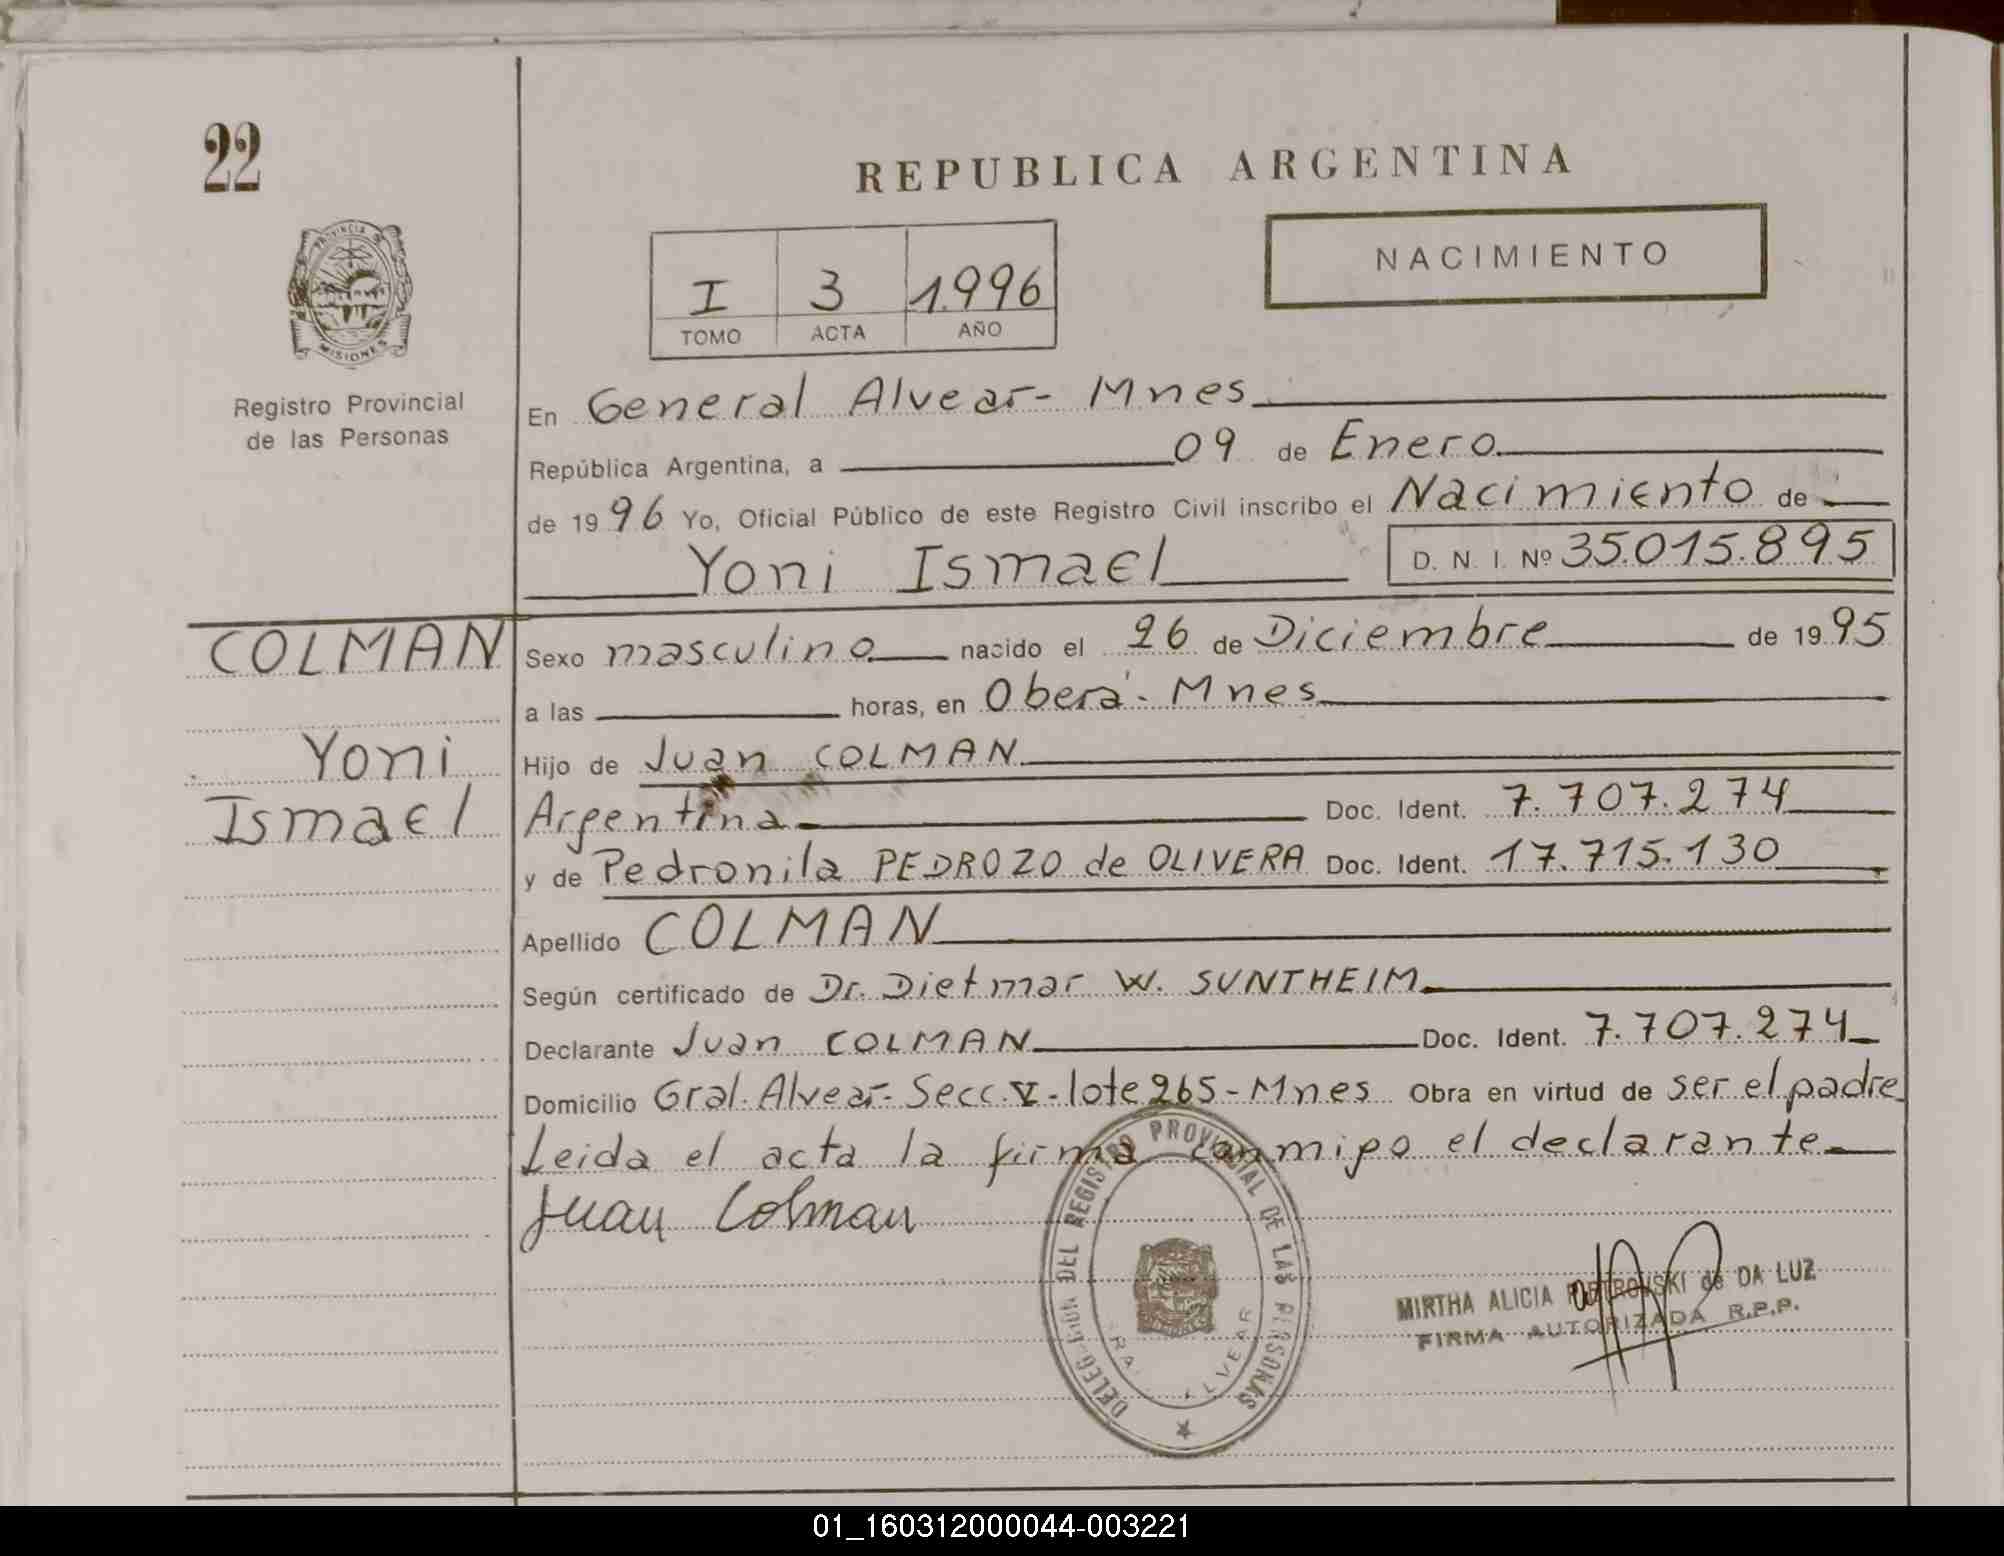 22
REPUBLICA ARGENTINA
NACIMIENTO
PROVINCIA
MISIONES
I 3 1.996
TOMO ACTA AÑO
Registro Provincial
de las Personas
En General Alvear - Mnes
República Argentina, a 09 de Enero
de 1996 Yo, Oficial Público de este Registro Civil inscribo el Nacimiento de
Yoni Ismael D. N. I. Nº 35.015.895
COLMAN
Yoni
Ismael
Sexo masculino nacido el 26 de Diciembre de 1995
a las horas, en Oberá - Mnes
Hijo de Juan COLMAN
Argentina Doc. Ident. 7.707.274
y de Pedronila PEDROZO de OLIVERA Doc. Ident. 17.715.130
Apellido COLMAN
Según certificado de Dr. Dietmar W. SUNTHEIM
Declarante Juan COLMAN Doc. Ident. 7.707.274
Domicilio Gral. Alvear - Secc. V - lote 265 - Mnes Obra en virtud de ser el padre
Leida el acta la firma conmigo el declarante
Juan Colman
DEL REGISTRO PROVINCIAL DE LAS PERSONAS
ALVEAR
MIRTHA ALICIA de DA LUZ
FIRMA AUTORIZADA R.P.P.
01_160312000044-003221